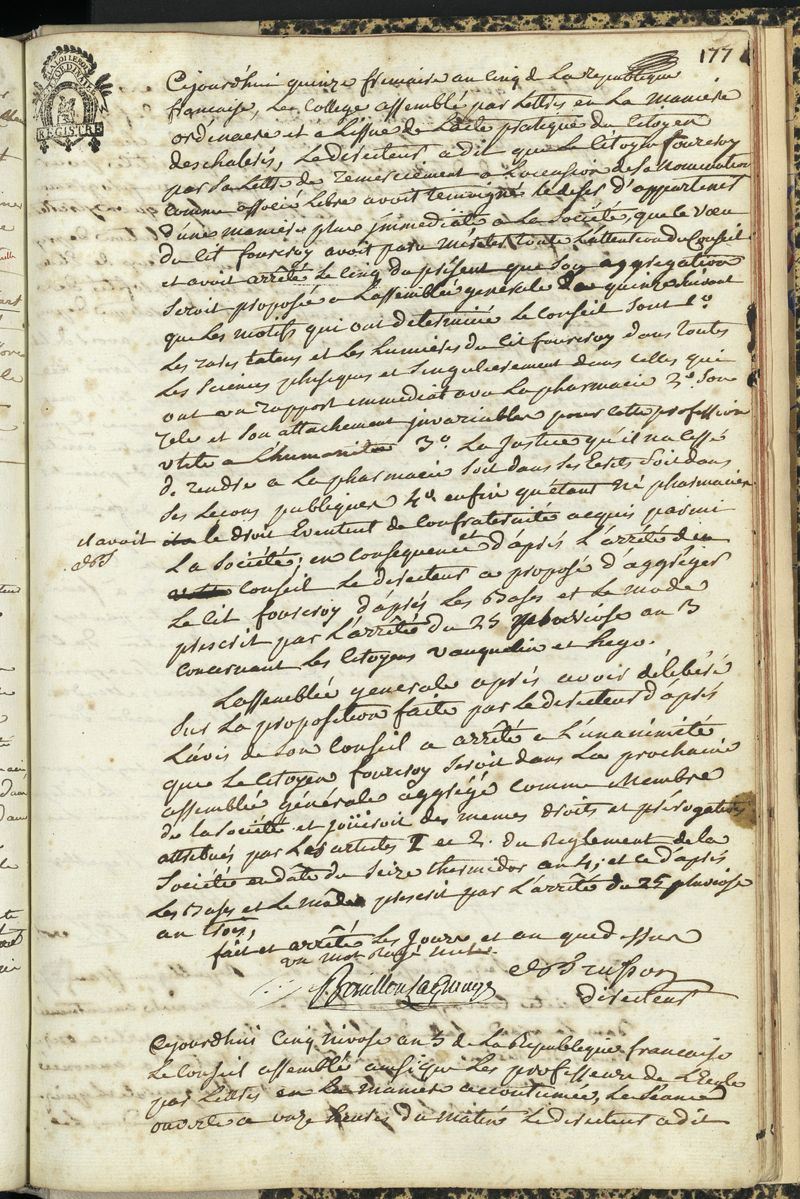 177
LA LOI LE DIT
REGISTRE
Cejourdhui quinze frimaire an cinq de La republique
francaise, Le College assemblé par Lettres en La maniere
ordinaire et a L'issue de Lacte pratique du Citoyen
deschaleris, Le directeur a dit que Le Citoyen fourcroy
par Sa Lettre de remerciement a L'occasion de Sa nomination
comme associé Libre avoit temoigné le desir d'appartenir
d'une maniere plus immediate a La Société, que le vœu
du Cit fourcroy avoit paru meriter toute L'attention du Conseil
et avoit arrêté Le cinq du présent que Son aggregation
Seroit proposée a L'assemblée generale du quinze Suivant
que Les motifs qui ont determiné Le Conseil Sont 1.º
Les rares talens et Les Lumieres du Cit fourcroy dans toutes
Les Sciences physiques et Singulierement dans celles qui
ont un rapport immediat avec La pharmacie 2.º Son
zele et Son attachement invariables pour cette profession
utile a L'humanité 3.º La Justice qu'il na Cessé
de rendre a La pharmacie Soit dans Ses Ecrits Soit dans
Ses Lecons publiques 4.º enfin qu'étant né pharmacien
il avoit le droit Eventuel de Confraternité acquis parmi
La Société; en consequence d'aprés L'arrêté de
Conseil Le directeur a proposé d'aggréger
Le Cit fourcroy d'aprés Les Bases et Le mode
prescrit par L'arrêté du 25 pluviose an 3
Concernant Les Citoyens vauquelin et hego.
L'assemblée generale aprés avoir délibéré
Sur La proposition faite par Le directeur d'aprés
L'avis de Son Conseil a arrêté a L'unanimité
que Le Citoyen fourcroy Seroit dans La prochaine
assemblée générale aggrégé comme Membre
de La Société et joüiroit des memes droits et prérogatives
attribués par Les articles 1 et 2. du Reglement de la
Société en dâte du Seize thermidor an 4; et ce d'aprés
Les Bases et Le mode prescrit par L'arrêté du 25 pluviose
an trois,
fait et arrêté Les Jours et an que dessus
un mot Rayé nul
Bouillon Lagrange
directeur
Cejourdhui Cinq nivose an 5 de La Republique francaise
Le Conseil assemblé ainsi que Les professeurs de L'Ecole
par Lettres en La maniere accoutumée, La Seance
ouverte a onze heures du matin Le directeur a dit